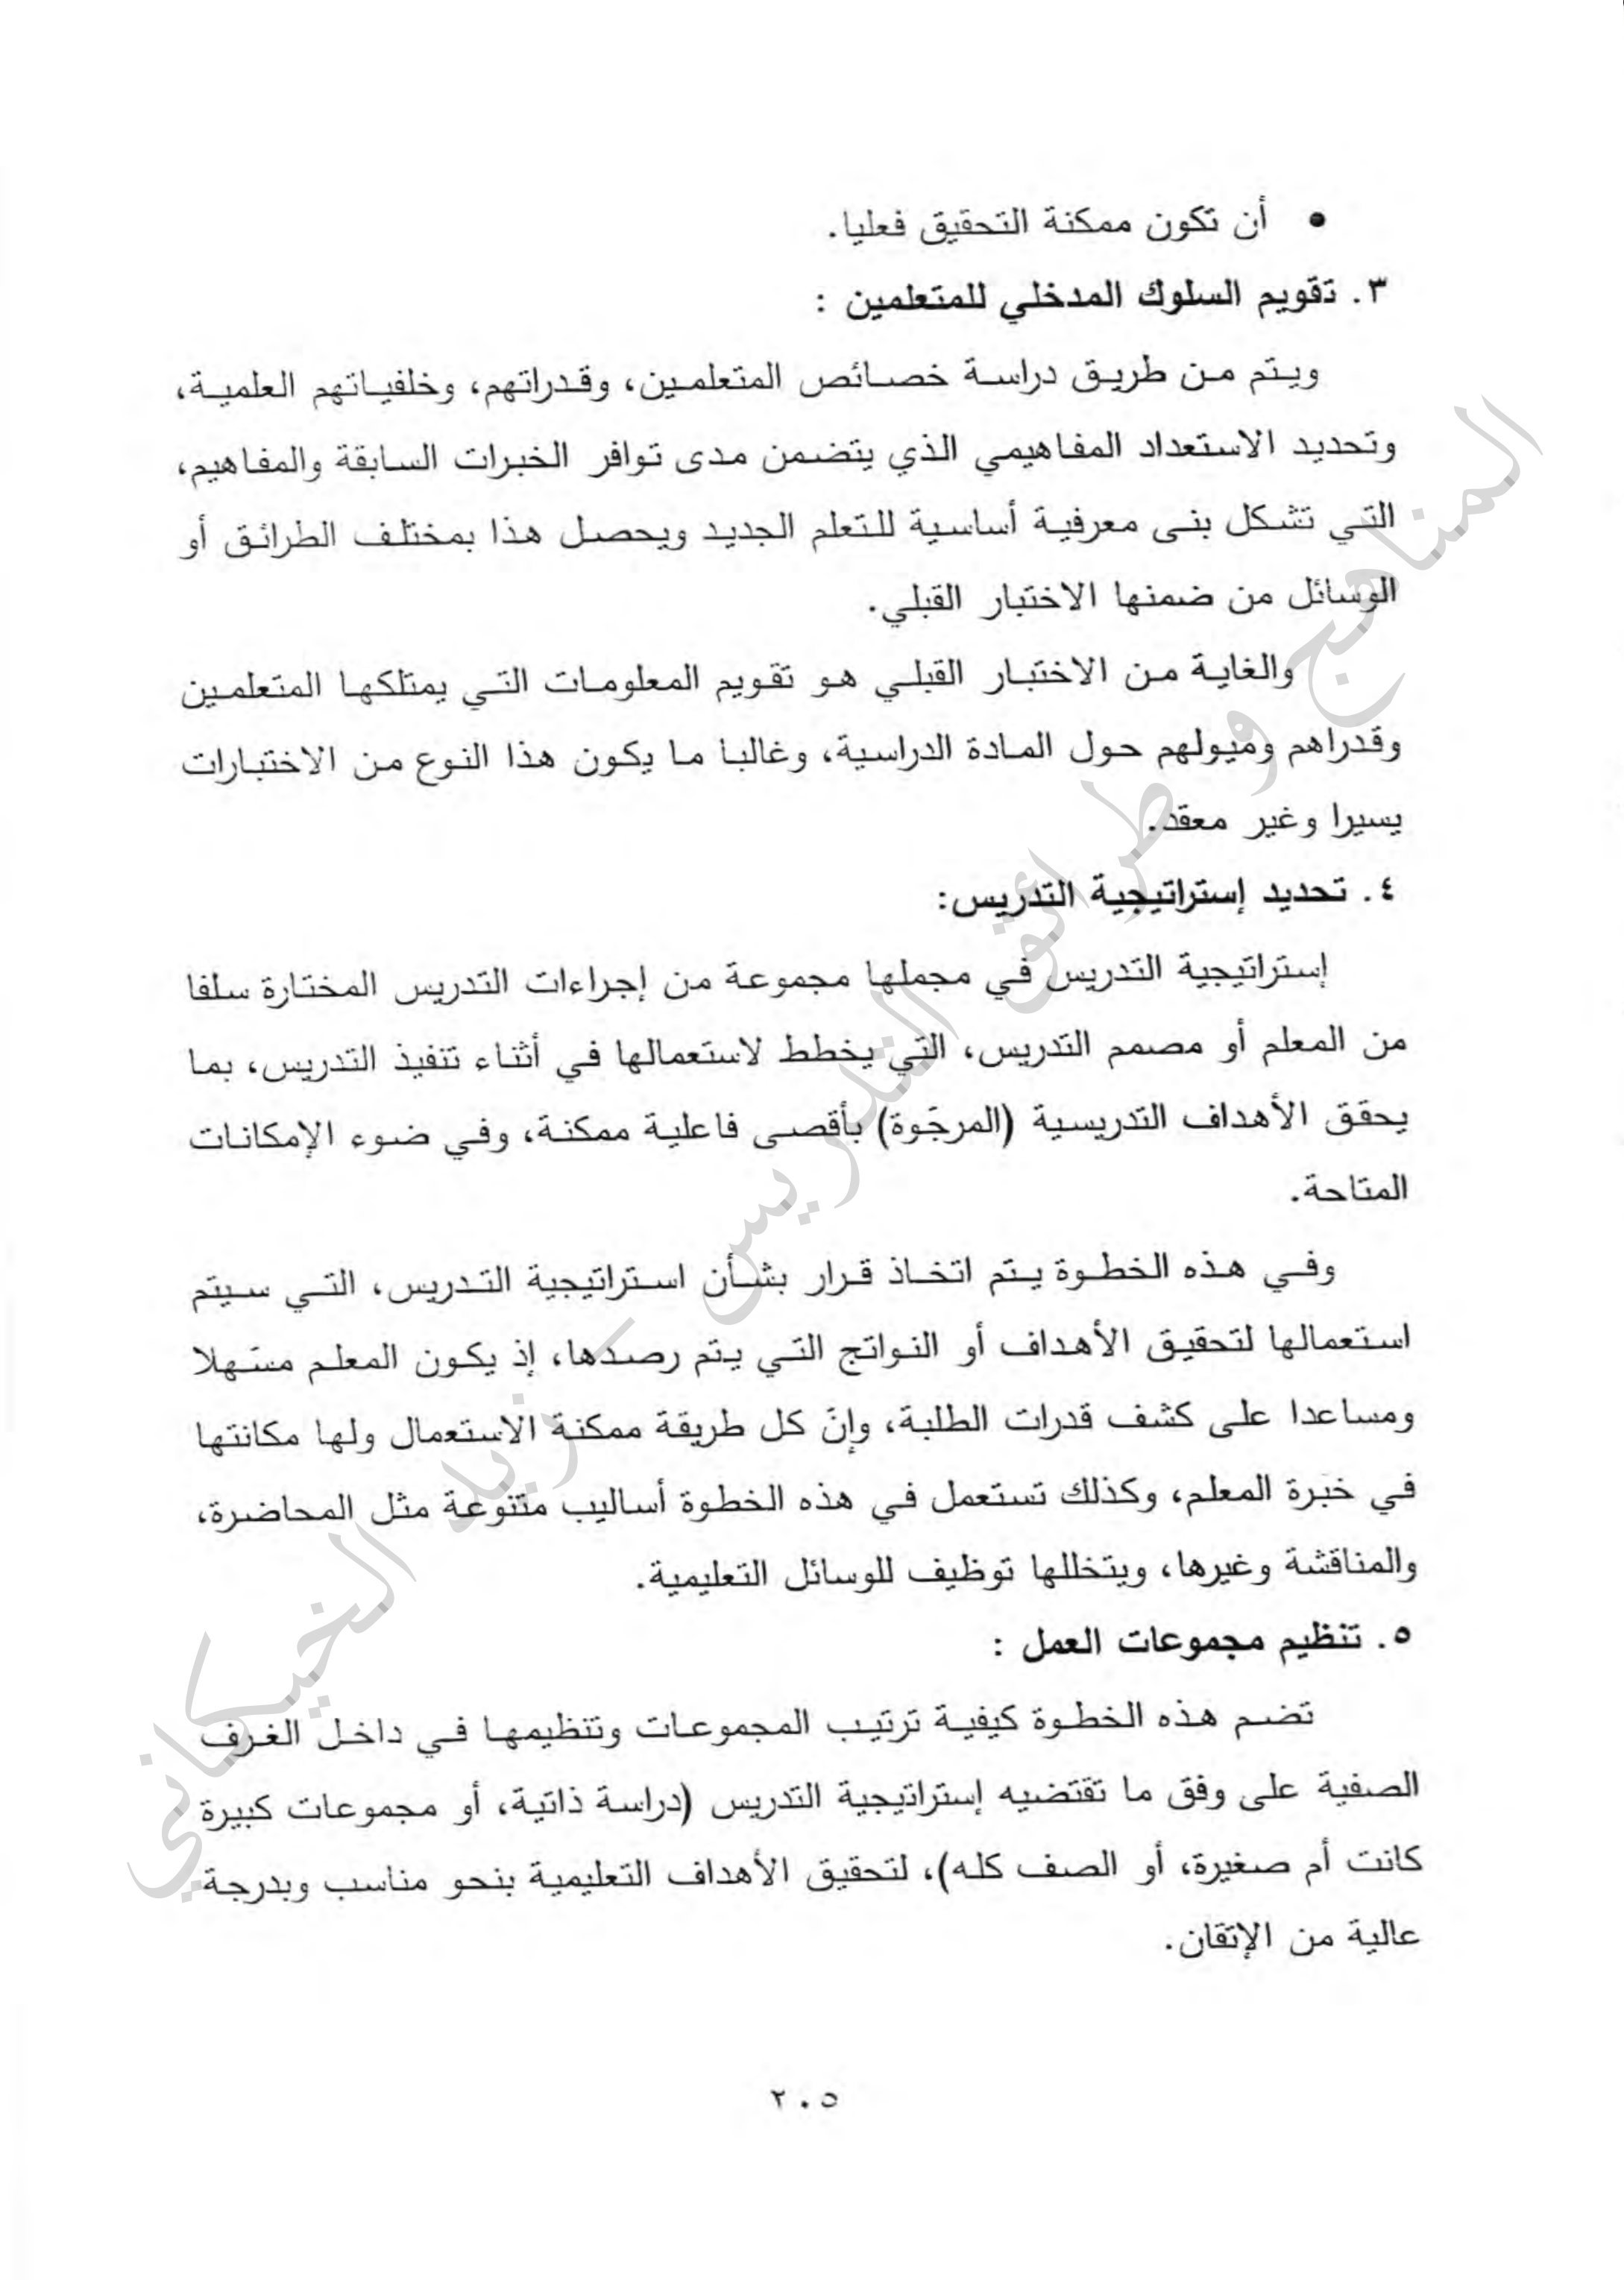 • أن تكون ممكنة التحقيق فعليا.
٣. تقويم السلوك المدخلي للمتعلمين :
ويتم من طريق دراسة خصائص المتعلمين، وقدراتهم، وخلفياتهم العلمية،
وتحديد الاستعداد المفاهيمي الذي يتضمن مدى توافر الخبرات السابقة والمفاهيم،
التي تشكل بنى معرفية أساسية للتعلم الجديد ويحصل هذا بمختلف الطرائق أو
الوسائل من ضمنها الاختبار القبلي.
والغاية من الاختبار القبلي هو تقويم المعلومات التي يمتلكها المتعلمين
وقدراهم وميولهم حول المادة الدراسية، وغالبا ما يكون هذا النوع من الاختبارات
يسيرا وغير معقد.
٤. تحديد إستراتيجية التدريس:
إستراتيجية التدريس في مجملها مجموعة من إجراءات التدريس المختارة سلفا
من المعلم أو مصمم التدريس، التي يخطط لاستعمالها في أثناء تنفيذ التدريس، بما
يحقق الأهداف التدريسية (المرجَوة) بأقصى فاعلية ممكنة، وفي ضوء الإمكانات
المتاحة.
وفي هذه الخطوة يتم اتخاذ قرار بشأن استراتيجية التدريس، التي سيتم
استعمالها لتحقيق الأهداف أو النواتج التي يتم رصدها، إذ يكون المعلم مسَهلا
ومساعدا على كشف قدرات الطلبة، وإنَ كل طريقة ممكنة الاستعمال ولها مكانتها
في خبرة المعلم، وكذلك تستعمل في هذه الخطوة أساليب متنوعة مثل المحاضرة،
والمناقشة وغيرها، ويتخللها توظيف للوسائل التعليمية.
٥. تنظيم مجموعات العمل :
تضم هذه الخطوة كيفية ترتيب المجموعات وتنظيمها في داخل الغرف
الصفية على وفق ما تقتضيه إستراتيجية التدريس (دراسة ذاتية، أو مجموعات كبيرة
كانت أم صغيرة، أو الصف كله)، لتحقيق الأهداف التعليمية بنحو مناسب وبدرجة
عالية من الإتقان.
٢٠٥
المناهج وطرائق التدريس – زيد الخيكاني